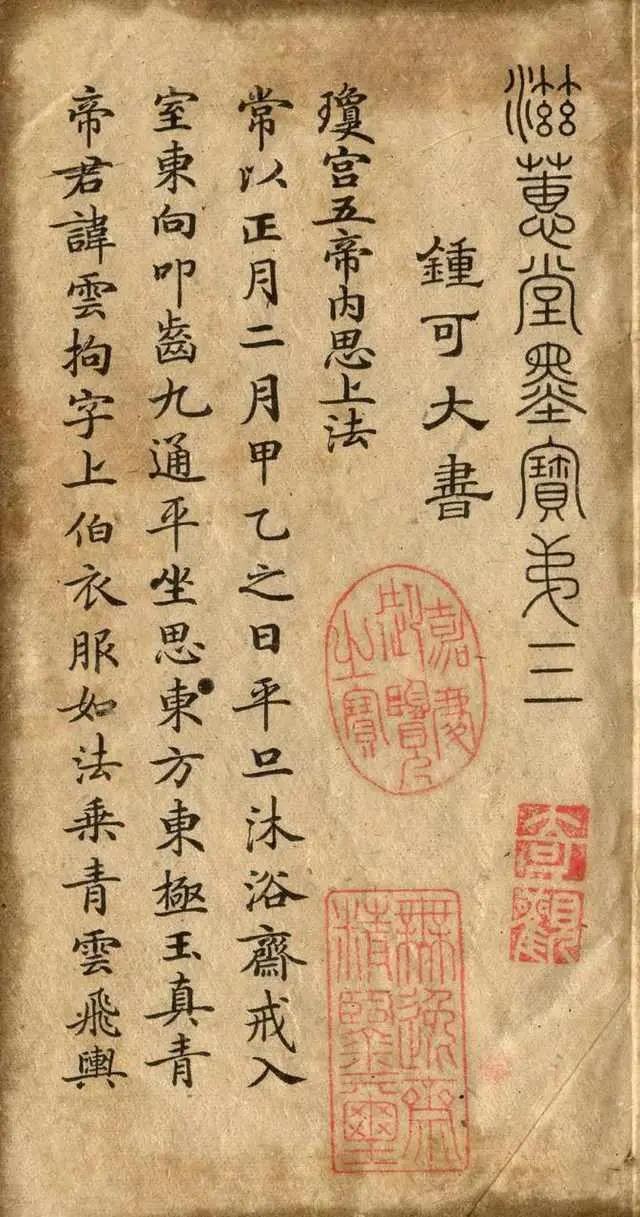 滋蕙堂墨寶弟三
奇觀
鍾可大書
嘉慶御覽之寶
無逸齋精鑒璽
瓊宫五帝内思上法
常以正月二月甲乙之日平旦沐浴齋戒入
室東向叩齒九通平坐思東方東極玉真青
帝君諱雲拘字上伯衣服如法乘青雲飛輿